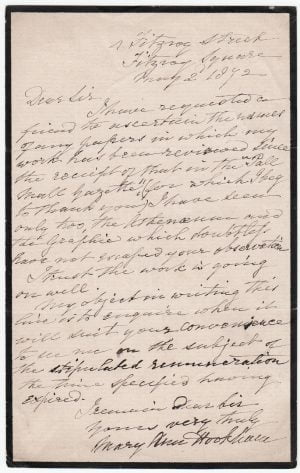 2 Fitzroy Street
Fitzroy Square
May 2 1872
Dear Sir
I have requested a
friend to ascertain the names
of any papers in which my
work has been reviewed since
the receipt of that in the "Pall
Mall Gazette (for which I beg
to thank you) I have seen
only two, the Athenæum and
the Graphic which doubtless
have not escaped your observation
I trust the work is going
on well.
My object in writing this
time is to enquire when it
will suit your convenience
to see me on the subject of
the stipulated remuneration
the time specified having
expired.
I remain Dear Sir
Yours very truly
Mary Ann Hookham